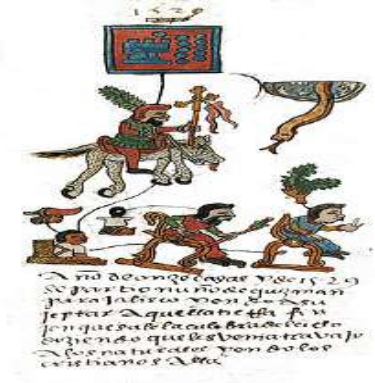 1529
Año de onze casas y de 1529
se partio nuño de guzman
para jalisco yendo a su
jetar aquella tierra fi
jen que sale la culebra del cielo
diziendo que les venia travajo
a los naturales yendo los
cristianos alla